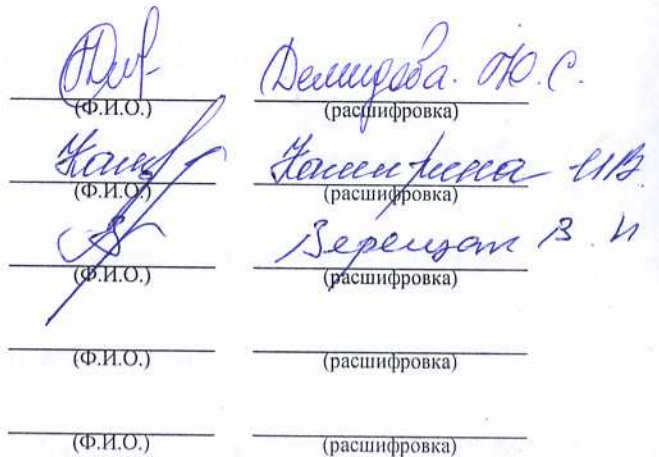 Демидова. Ю. С.
(Ф.И.О.) (расшифровка)
Каширина ИВ
(Ф.И.О.) (расшифровка)
Верещак В. И
(Ф.И.О.) (расшифровка)
(Ф.И.О.) (расшифровка)
(Ф.И.О.) (расшифровка)